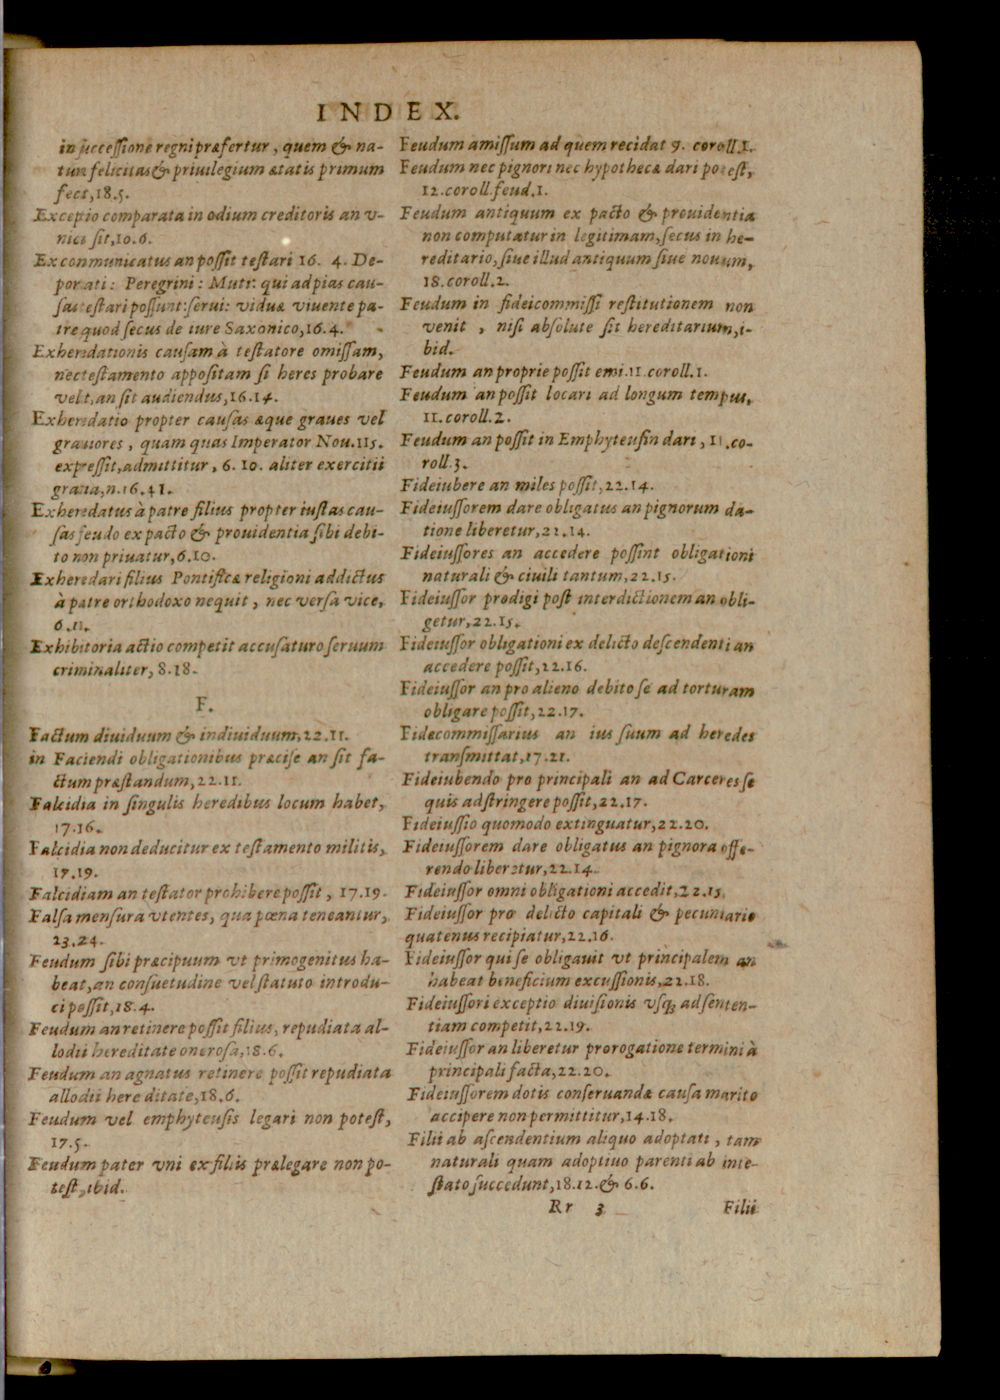 INDEX.
in successione regni præfertur, quem & na-
turæ felicitas & priuilegium ætatis primum
fecit, 18.5.
Exceptio comparata in odium creditoris an v-
nici sit, 10.6.
Exconmunicatus an possit testari 16. 4. De-
portati: Peregrini: Muti: qui ad pias cau-
sas testari possunt: serui: viduæ viuente pa-
tre quod secus de iure Saxonico, 16.4.
Exheredationis causam à testatore omissam,
nec testamento appositam si heres probare
velit, an sit audiendus, 16.14.
Exheredatio propter causas æque graues vel
grauiores, quam quas Imperator Nou. 115.
expressit, admittitur, 6. 10. aliter exercitii
gratia, n. 16. 41.
Exheredatus à patre filius propter iustas cau-
sas feudo ex pacto & prouidentia sibi debi-
to non priuatur, 6.10.
Exheredari filius Pontificæ religioni addictus
à patre orthodoxo nequit, nec versa vice,
6.11.
Exhibitoria actio competit accusaturo seruum
criminaliter, 8.18.
F.
Factum diuiduum & indiuiduum, 22.11.
in Faciendi obligationibus præcise an sit fa-
ctum præstandum, 22.11.
Falcidia in singulis heredibus locum habet,
17.16.
Falcidia non deducitur ex testamento militis,
17.19.
Falcidiam an testator prohibere possit, 17.19.
Falsa mensura vtentes, qua pœna teneantur,
23.24.
Feudum sibi præcipuum vt primogenitus ha-
beat, an consuetudine vel statuto introdu-
ci possit, 18.4.
Feudum an retinere possit filius, repudiata al-
lodii hereditate onerosa, 18.6.
Feudum an agnatus retinere possit repudiata
allodii here ditate, 18.6.
Feudum vel emphyteusis legari non potest,
17.5.
Feudum pater vni ex filiis prælegare non po-
test, ibid.
Feudum amissum ad quem recidat 9. coroll. 1.
Feudum nec pignori nec hypothecæ dari potest,
12. coroll. feud. 1.
Feudum antiquum ex pacto & prouidentia
non computatur in legitimam, secus in he-
reditario, siue illud antiquum siue nouum,
18. coroll. 2.
Feudum in fideicommissi restitutionem non
venit, nisi absolute sit hereditarium, i-
bid.
Feudum an proprie possit emi. 11. coroll. 1.
Feudum an possit locari ad longum tempus,
11. coroll. 2.
Feudum an possit in Emphyteusin dari, 11. co-
roll. 3.
Fideiubere an miles possit, 22.14.
Fideiussorem dare obligatus an pignorum da-
tione liberetur, 21.14.
Fideiussores an accedere possint obligationi
naturali & ciuili tantum, 22.15.
Fideiussor prodigi post interdictionem an obli-
getur, 22.15.
Fideiussor obligationi ex delicto descendenti an
accedere possit, 22.16.
Fideiussor an pro alieno debito se ad torturam
obligare possit, 22.17.
Fidecommissarius an ius suum ad heredes
transmittat, 17.21.
Fideiubendo pro principali an ad Carceres se
quis adstringere possit, 22.17.
Fideiussio quomodo extinguatur, 22.20.
Fideiussorem dare obligatus an pignora offe-
rendo liberetur, 22.14.
Fideiussor omni obligationi accedit, 22.15.
Fideiussor pro delicto capitali & pecuniario
quatenus recipiatur, 22.16.
Fideiussor qui se obligauit vt principalem an
habeat beneficium excussionis, 22.18.
Fideiussori exceptio diuisionis vsq; ad senten-
tiam competit, 22.19.
Fideiussor an liberetur prorogatione termini à
principali facta, 22.20.
Fideiussorem dotis conseruandæ causa marito
accipere non permittitur, 14.18.
Filii ab ascendentium aliquo adoptati, tam
naturali quam adoptiuo parenti ab inte-
stato succedunt, 18.12. & 6.6.
Rr 3 Filii